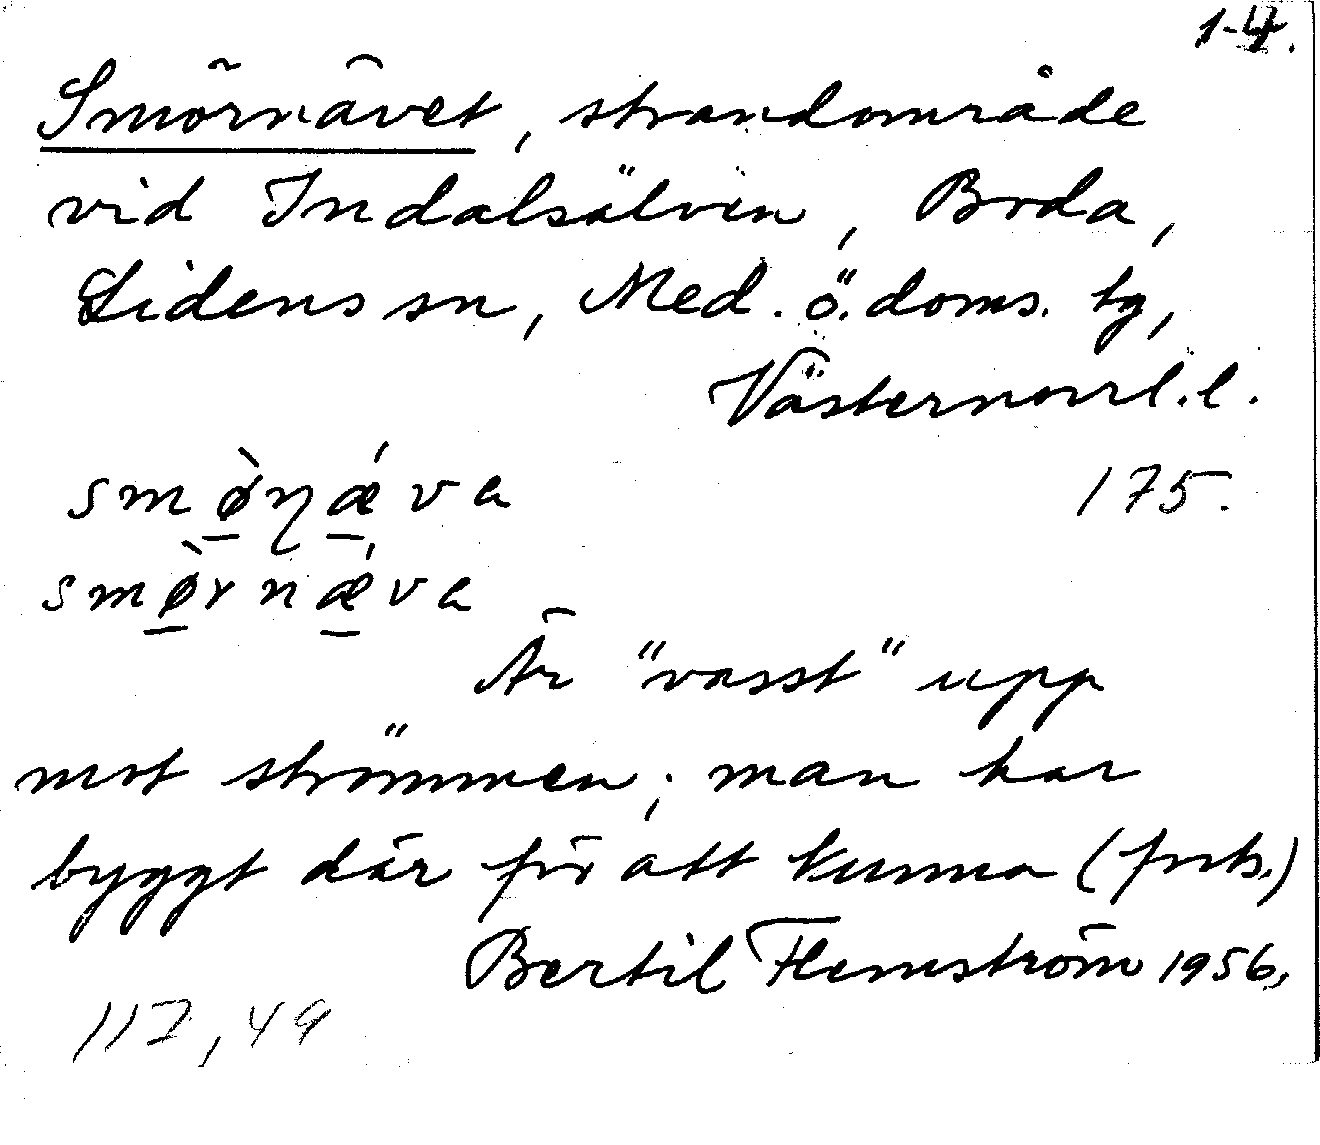 1-4.
Smörnävet, strandområde
vid Indalsälven, Boda,
Lidens sn, Med. ö. doms. tg,
Västernorrl. l.
smø̀ɳǽva
175.
smø̀rnǽva
Är "vasst" upp
mot strömmen; man har
byggt där för att kunna (forts.)
Bertil Flemström 1956,
117, 49